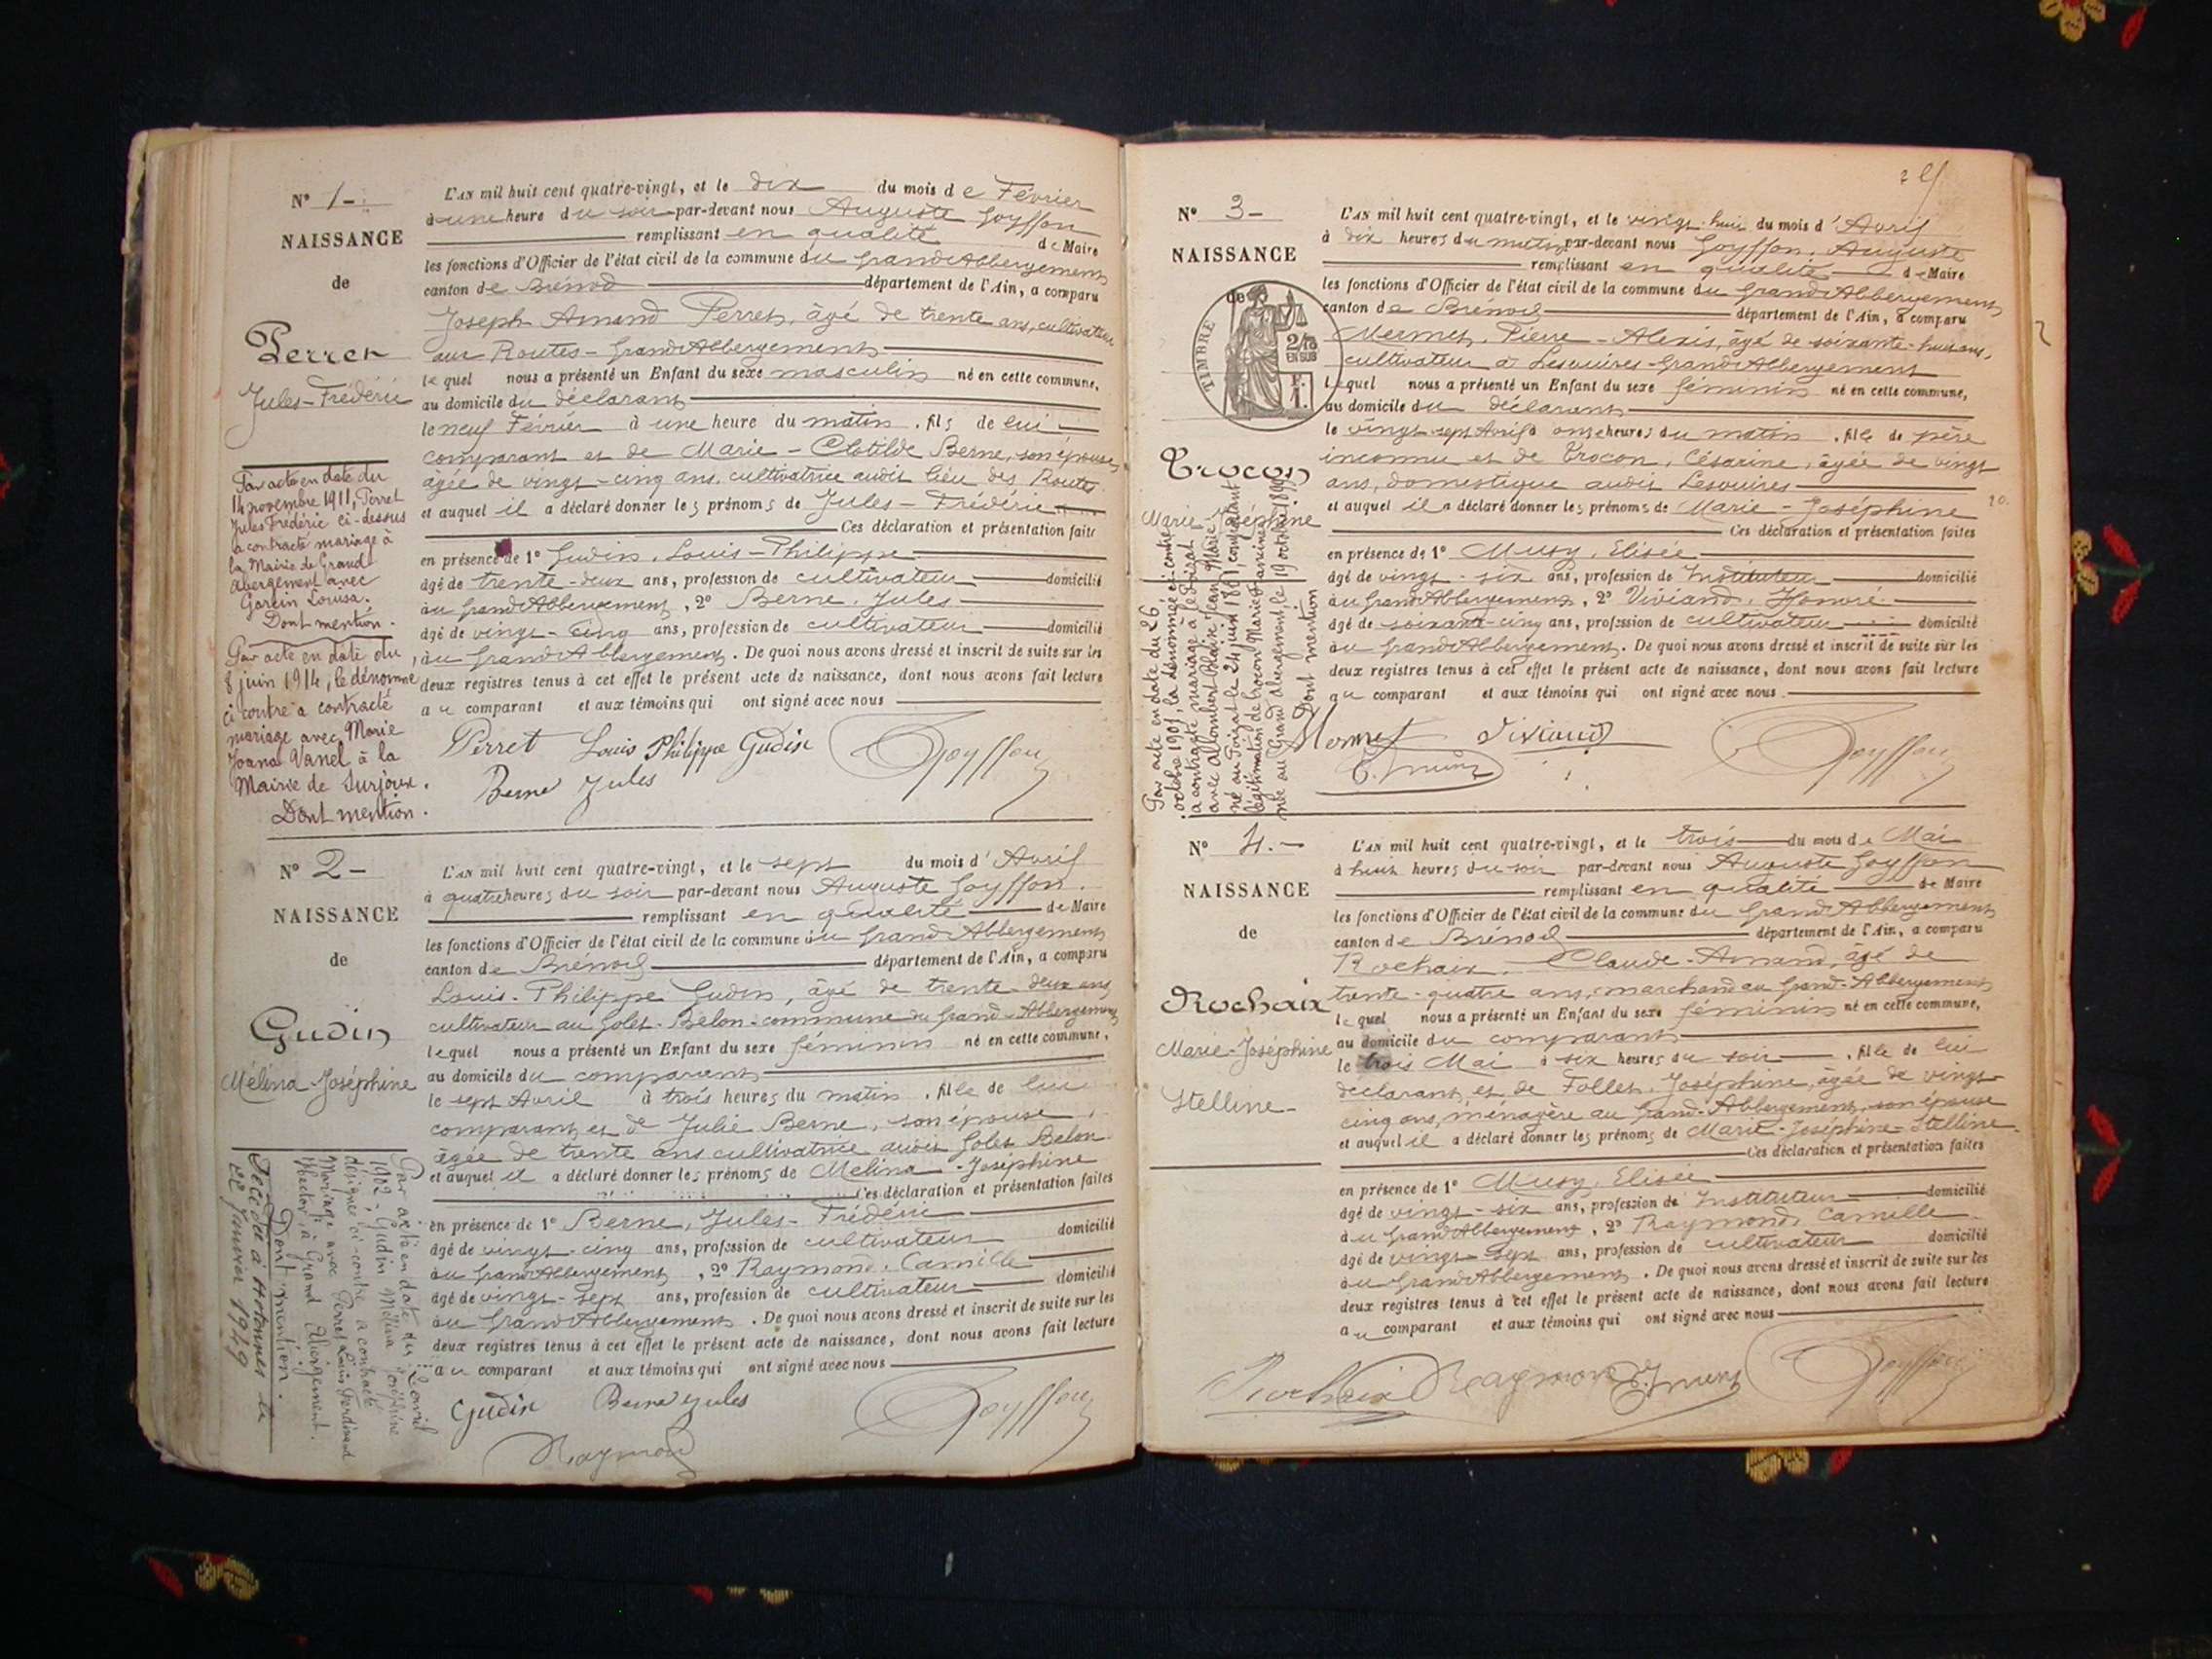 N° 1-
NAISSANCE
de
Perret
Jules-Frédéric
Par acte en date du
14 novembre 1911, Perret
Jules Frédéric ci-dessus
a contracté mariage à
la Mairie de Grand
Abergement avec
Garcin Lovisa.
Dont mention.
Par acte en date du
8 juin 1914, le dénommé
ci contre a contracté
mariage avec Marie
Joana Vanel à la
Mairie de Surjoux.
Dont mention.
L'AN mil huit cent quatre-vingt, et le dix du mois de Février
à une heure du soir par-devant nous Auguste Goyffon
remplissant en qualité de Maire
les fonctions d'Officier de l'état civil de la commune du Grand Abbergement
canton de Brénod département de l'Ain, a comparu
Joseph Amand Perret, âgé de trente ans, cultivateur
aux Routes-Grand Abbergement
lequel nous a présenté un Enfant du sexe masculin né en cette commune,
au domicile du déclarant
le neuf Février à une heure du matin, fils de lui
comparant et de Marie-Clotilde Berne, son épouse,
âgée de vingt-cinq ans, cultivatrice audit lieu des Routes
et auquel il a déclaré donner les prénoms de Jules-Frédéric
Ces déclaration et présentation faites
en présence de 1° Gudin, Louis-Philippe
âgé de trente-deux ans, profession de cultivateur domicilié
au Grand Abbergement, 2° Berne, Jules
âgé de vingt-cinq ans, profession de cultivateur domicilié
au Grand Abbergement. De quoi nous avons dressé et inscrit de suite sur les
deux registres tenus à cet effet le présent acte de naissance, dont nous avons fait lecture
au comparant et aux témoins qui ont signé avec nous
Perret Louis Philippe Gudin Goyffon
Berne Jules
N° 2-
NAISSANCE
de
Gudin
Mélina Joséphine
1902, Gudin Mélina Joséphine
désignée ci-contre a contracté
mariage avec Perret Louis Ferdinand
à Grand Abergement.
Dont mention.
Décédée à Hotonnes le
22 Janvier 1949
L'AN mil huit cent quatre-vingt, et le sept du mois d'Avril
à quatre heures du soir par-devant nous Auguste Goyffon.
remplissant en qualité de Maire
les fonctions d'Officier de l'état civil de la commune du Grand Abbergement
canton de Brénod département de l'Ain, a comparu
Louis-Philippe Gudin, âgé de trente-deux ans
cultivateur au Golet-Belon-commune du Grand-Abbergement
lequel nous a présenté un Enfant du sexe féminin né en cette commune,
au domicile du comparant
le sept Avril à trois heures du matin, fille de lui
comparant et de Julie Berne, son épouse,
âgée de trente ans cultivatrice audit Golet Belon
et auquel il a déclaré donner les prénoms de Mélina-Joséphine
Ces déclaration et présentation faites
en présence de 1° Berne, Jules-Frédéric
âgé de vingt-cinq ans, profession de cultivateur domicilié
au Grand Abbergement, 2° Raymond, Camille
âgé de vingt-sept ans, profession de cultivateur domicilié
au Grand Abbergement. De quoi nous avons dressé et inscrit de suite sur les
deux registres tenus à cet effet le présent acte de naissance, dont nous avons fait lecture
au comparant et aux témoins qui ont signé avec nous
Gudin Berne Jules Goyffon
Raymond
N° 3-
NAISSANCE
de
TIMBRE
2/10
EN SUS
Trocon
Marie-Joséphine
Par acte en date du 26
octobre 1901, la dénommée ci-contre
a contracté mariage à le Poizat
avec Allombert Blaise Jean Marie
né au Poizat le 24 juin 1871, comportant
légitimation de Trocon Marie
née au Grand Abergement, le 19 octobre 1899
Dont mention
L'AN mil huit cent quatre-vingt, et le vingt-huit du mois d'Avril
à dix heures du matin par-devant nous Goyffon, Auguste
remplissant en qualité de Maire
les fonctions d'Officier de l'état civil de la commune du Grand Abbergement
canton de Brénod département de l'Ain, a comparu
Mermet, Pierre-Alexis, âgé de soixante-huit ans,
cultivateur à Lesquires-Grand Abbergement
lequel nous a présenté un Enfant du sexe féminin né en cette commune,
au domicile du déclarant
le vingt-sept Avril à onze heures du matin, fille de père
inconnu et de Trocon, Césarine, âgée de vingt
ans, domestique audit Lesquires
20.
et auquel il a déclaré donner les prénoms de Marie-Joséphine
Ces déclaration et présentation faites
en présence de 1° Musy, Elisée
âgé de vingt-six ans, profession de Instituteur domicilié
au Grand Abbergement, 2° Viviand, Honoré
âgé de soixante-cinq ans, profession de cultivateur domicilié
au Grand Abbergement. De quoi nous avons dressé et inscrit de suite sur les
deux registres tenus à cet effet le présent acte de naissance, dont nous avons fait lecture
au comparant et aux témoins qui ont signé avec nous.
Mermet Viviand Goyffon
N° 4.-
NAISSANCE
de
Rochaix
Marie-Joséphine
Stelline-
L'AN mil huit cent quatre-vingt, et le trois du mois de Mai
à huit heures du soir par-devant nous Auguste Goyffon
remplissant en qualité de Maire
les fonctions d'Officier de l'état civil de la commune du Grand Abbergement
canton de Brénod département de l'Ain, a comparu
Rochaix, Claude-Amand, âgé de
trente-quatre ans, marchand au Grand-Abbergement
lequel nous a présenté un Enfant du sexe féminin né en cette commune,
au domicile du comparant
le trois Mai à six heures du soir, fille de lui
déclarant et de Follet, Joséphine, âgée de vingt-
cinq ans, ménagère au Grand-Abbergement, son épouse
et auquel il a déclaré donner les prénoms de Marie-Joséphine-Stelline.
Ces déclaration et présentation faites
en présence de 1° Musy, Elisée
âgé de vingt-six ans, profession de Instituteur domicilié
au Grand Abbergement, 2° Raymond, Camille
âgé de vingt-sept ans, profession de cultivateur domicilié
au Grand Abbergement. De quoi nous avons dressé et inscrit de suite sur les
deux registres tenus à cet effet le présent acte de naissance, dont nous avons fait lecture
au comparant et aux témoins qui ont signé avec nous
Rochaix Raymond Goyffon